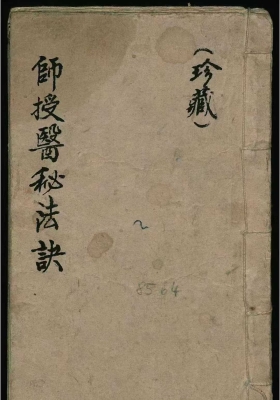 (珍藏)
師授醫秘法訣
8564